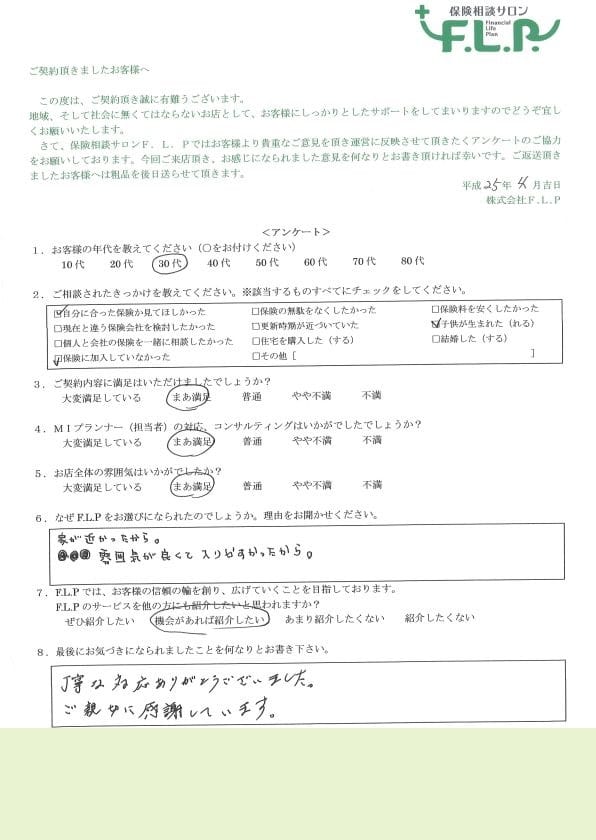 保険相談サロン
F.L.P.
Financial
Life
Plan
ご契約頂きましたお客様へ
この度は、ご契約頂き誠に有難うございます。
地域、そして社会に無くてはならないお店として、お客様にしっかりとしたサポートをしてまいりますのでどうぞ宜し
くお願いいたします。
さて、保険相談サロンＦ．Ｌ．Ｐではお客様より貴重なご意見を頂き運営に反映させて頂きたくアンケートのご協力
をお願いしております。今回ご来店頂き、お感じになられました意見を何なりとお書き頂ければ幸いです。ご返送頂き
ましたお客様へは粗品を後日送らせて頂きます。
平成 25 年 4 月吉日
株式会社Ｆ.Ｌ.Ｐ
＜アンケート＞
１．お客様の年代を教えてください（○をお付けください）
10代 20代 30代 40代 50代 60代 70代 80代
２．ご相談されたきっかけを教えてください。※該当するものすべてにチェックをしてください。
☑自分に合った保険か見てほしかった □保険の無駄をなくしたかった □保険料を安くしたかった
□現在と違う保険会社を検討したかった □更新時期が近づいていた ☑子供が生まれた（れる）
□個人と会社の保険を一緒に相談したかった □住宅を購入した（する） □結婚した（する）
☑保険に加入していなかった □その他［ ］
３．ご契約内容に満足はいただけましたでしょうか？
大変満足している まあ満足 普通 やや不満 不満
４．ＭＩプランナー（担当者）の対応、コンサルティングはいかがでしたでしょうか？
大変満足している まあ満足 普通 やや不満 不満
５．お店全体の雰囲気はいかがでしたか？
大変満足している まあ満足 普通 やや不満 不満
６．なぜF.L.Pをお選びになられたのでしょうか。理由をお聞かせください。
家が近かったから。
雰囲気が良くて入りやすかったから。
７．F.L.Pでは、お客様の信頼の輪を創り、広げていくことを目指しております。
F.L.Pのサービスを他の方にも紹介したいと思われますか？
ぜひ紹介したい 機会があれば紹介したい あまり紹介したくない 紹介したくない
８．最後にお気づきになられましたことを何なりとお書き下さい。
丁寧な対応ありがとうございました。
ご親切に感謝しています。